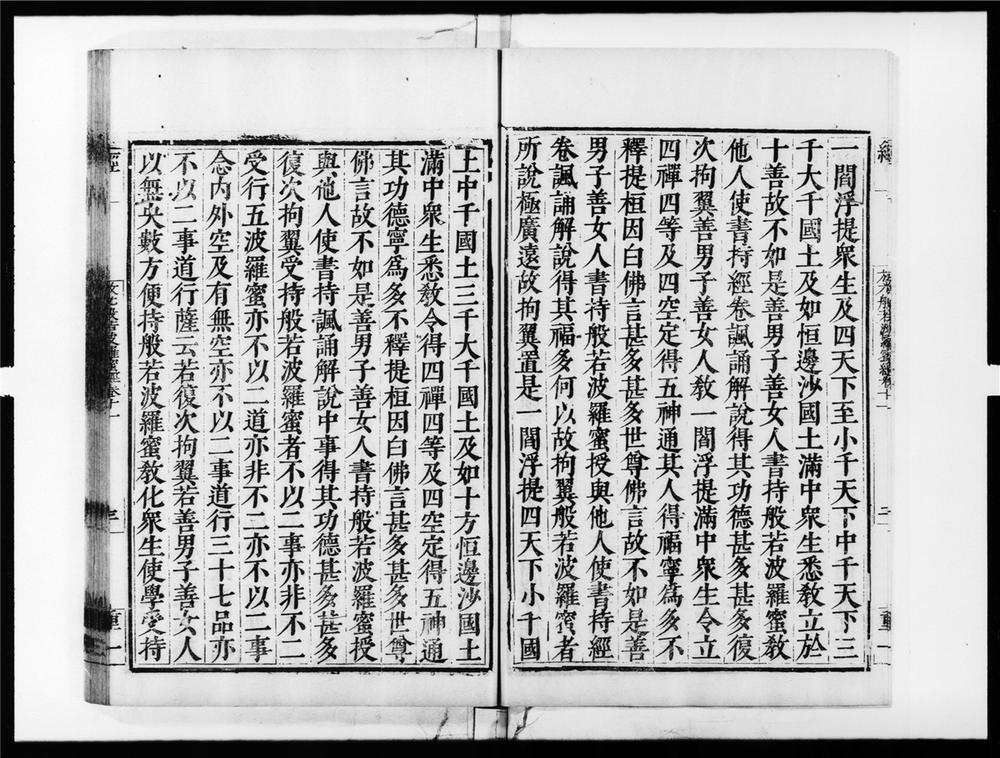 一閻浮提衆生及四天下至小千天下中千天下三
千大千國土及如恒邊沙國土滿中衆生悉教立於
十善故不如是善男子善女人書持般若波羅蜜教
他人使書持經卷諷誦解說得其功德甚多甚多復
次拘翼善男子善女人教一閻浮提滿中衆生令立
四禪四等及四空定得五神通其人得福寧爲多不
釋提桓因白佛言甚多甚多世尊佛言故不如是善
男子善女人書持般若波羅蜜授與他人使書持經
卷諷誦解說得其福多何以故拘翼般若波羅蜜者
所說極廣遠故拘翼置是一閻浮提四天下小千國
土中千國土三千大千國土及如十方恒邊沙國土
滿中衆生悉教令得四禪四等及四空定得五神通
其功德寧爲多不釋提桓因白佛言甚多甚多世尊
佛言故不如是善男子善女人書持般若波羅蜜授
與他人使書持諷誦解說中事得其功德甚多甚多
復次拘翼受持般若波羅蜜者不以二事亦非不二
受行五波羅蜜亦不以二道亦非不二亦不以二事
念内外空及有無空亦不以二事道行三十七品亦
不以二事道行薩云若復次拘翼若善男子善女人
以無央數方便持般若波羅蜜教化衆生使學受持